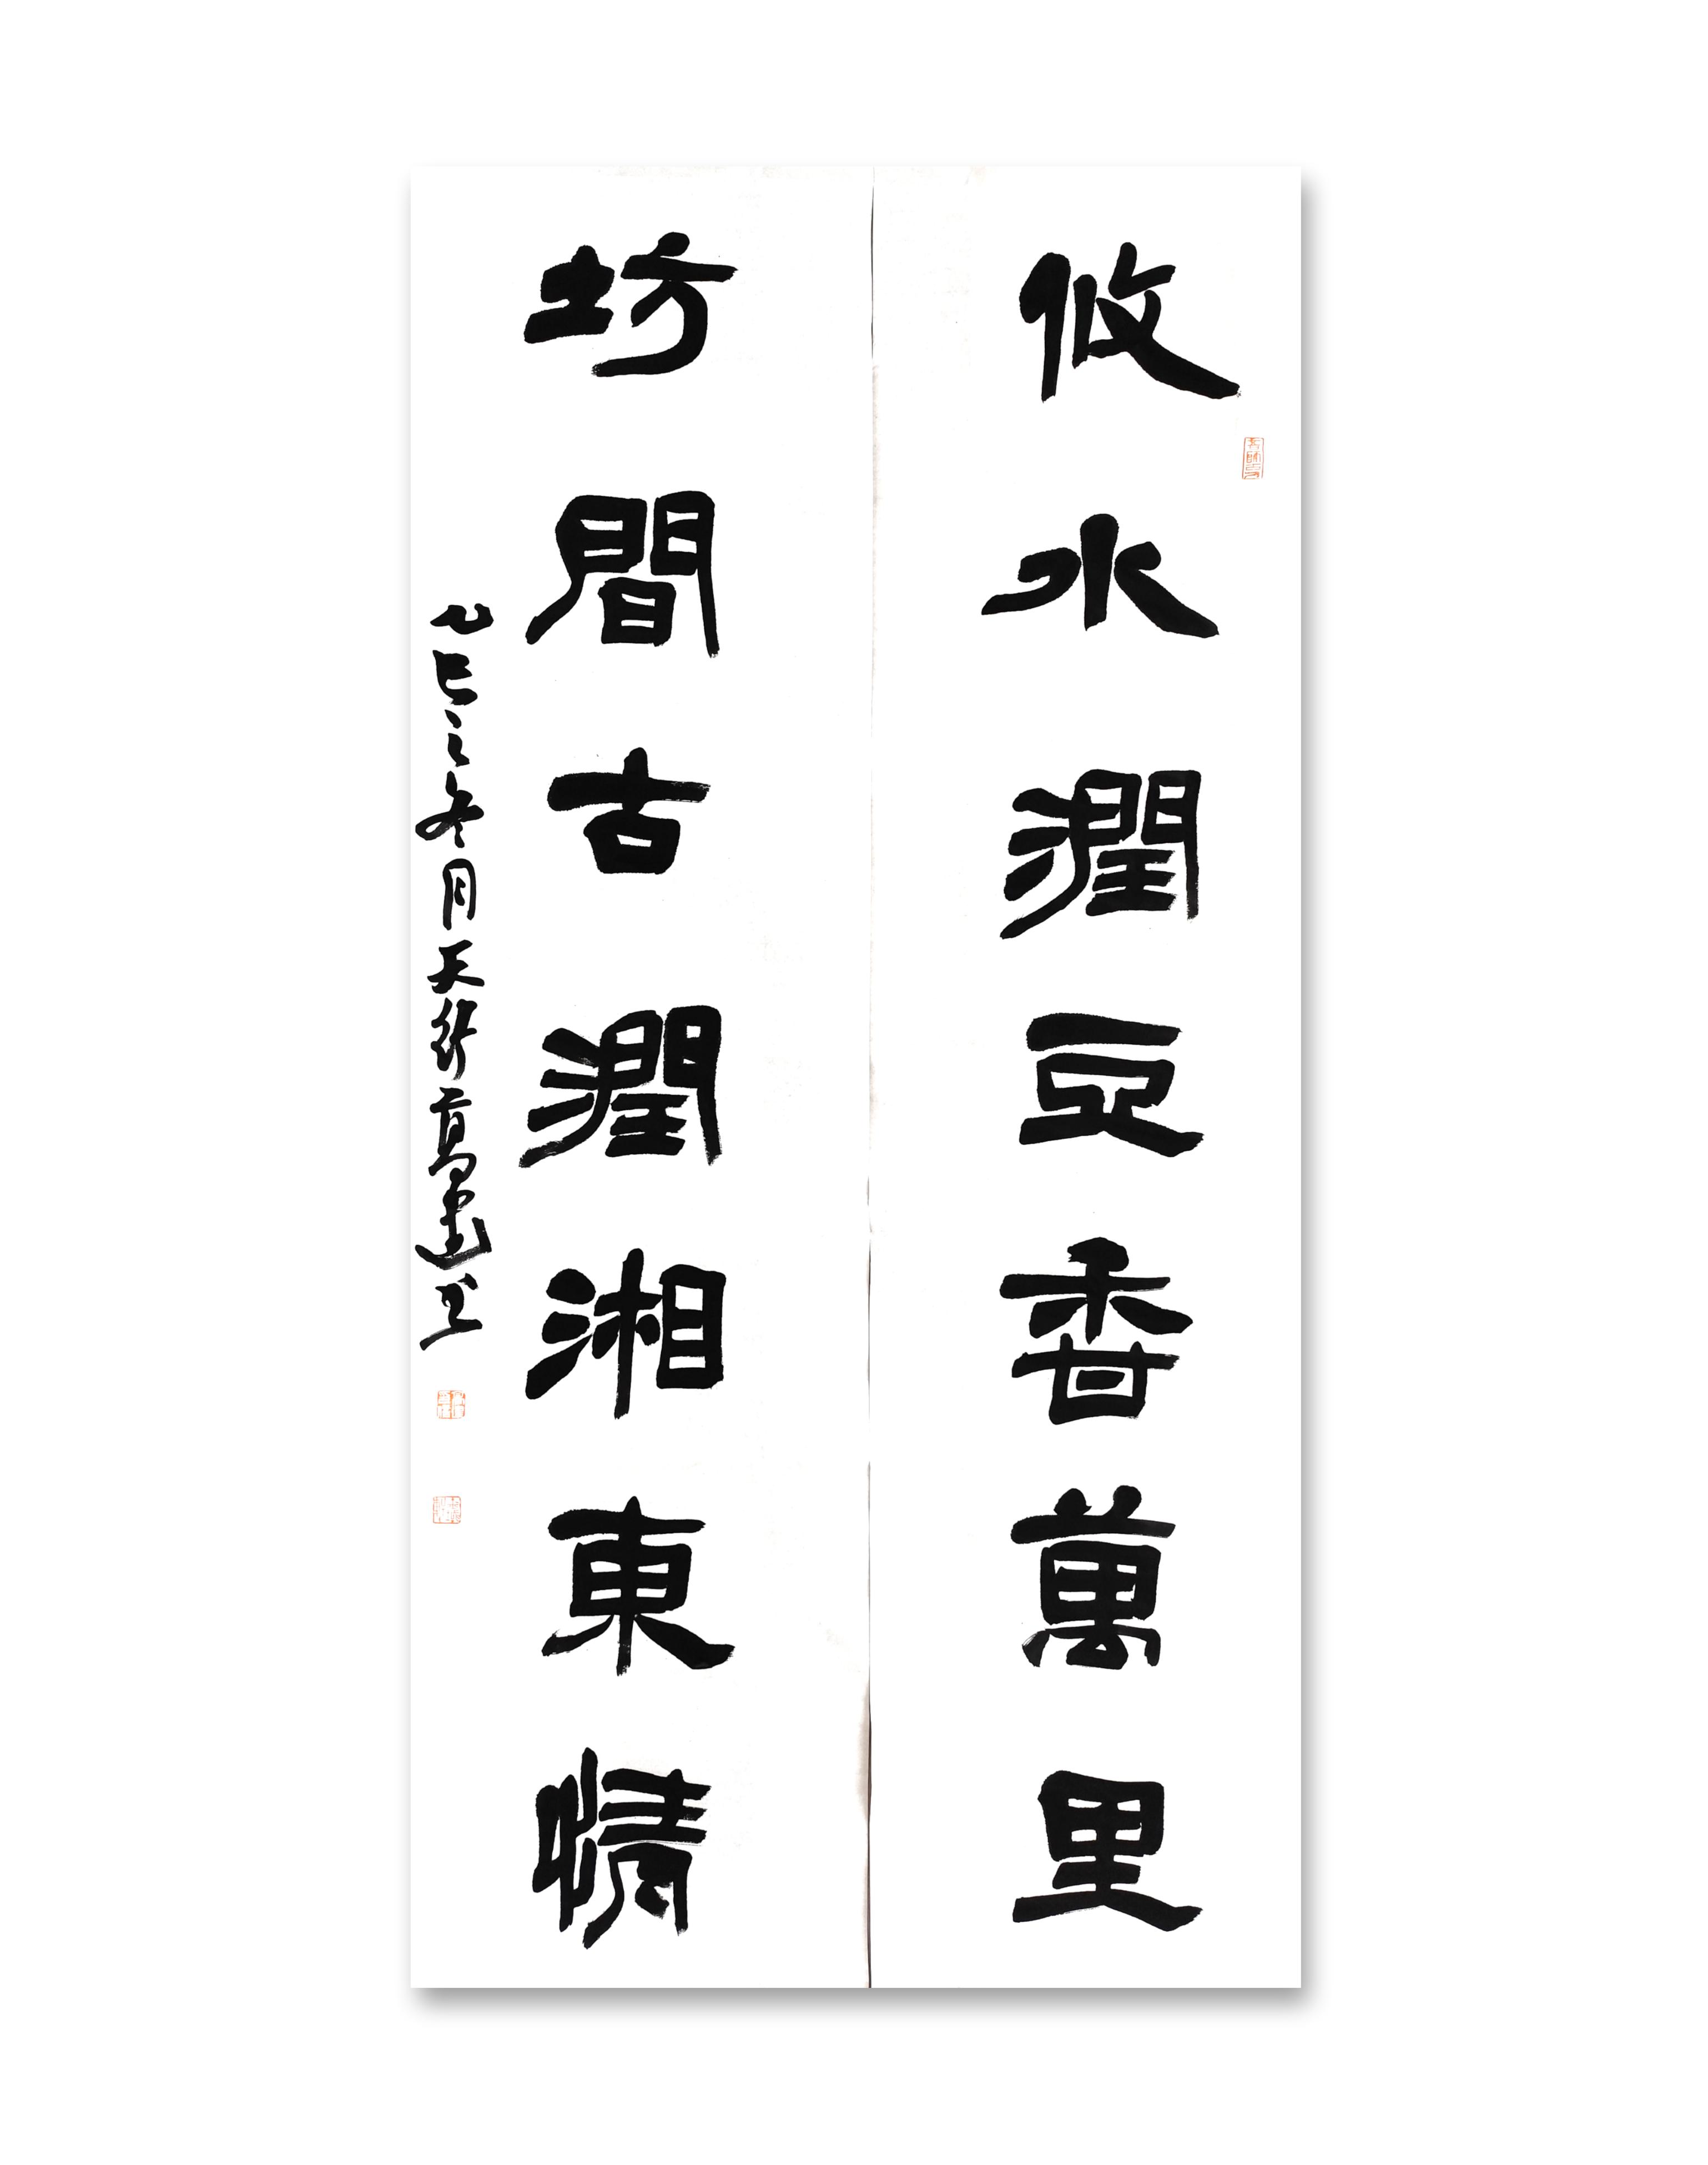 攸水潤豆香萬里
坊間古潤湘東情
乙巳之冬月天行